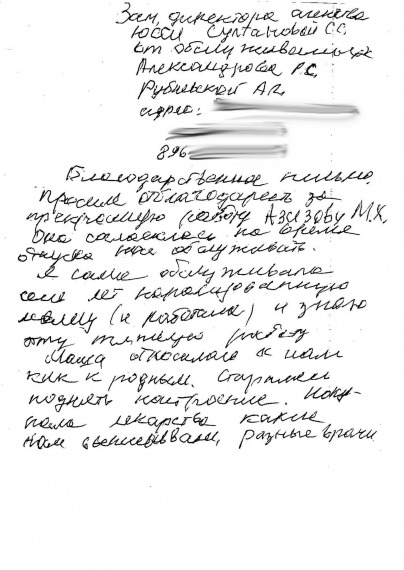 Зам. директора агенства
ЮССИ Султановой С.С.
от обслуживаемых
Александрова Р.С.
Рублевской А.И.
адрес:
896
Благодарственное письмо.
Просим отблагодарить за
прекрасную работу Азизову М.К.
Она согласилась на время
отпуска нас обслуживать.
Я сама обслуживала
семь лет парализованную
маму (и работала) и знаю
эту тяжелую работу
Маша относилась к нам
как к родным. Старалась
поднять настроение. Поку-
пала лекарства какие
нам выписывали, разные врачи